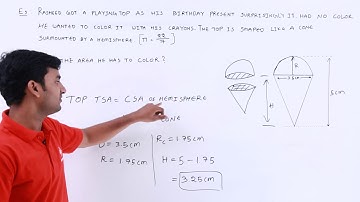 Ex RASHEED GOT A PLAYING TOP AS HIS BIRTHDAY PRESENT SURPRISINGLY IT HAD NO COLOR
HE WANTED TO COLOR IT WITH HIS CRAYONS. THE TOP IS SHAPED LIKE A CONE
SURMOUNTED BY A HEMISPHERE. [π = 22/7]
THE AREA HE HAS TO COLOR?
R
H
5cm
TOP TSA = CSA OF HEMISPHERE
CONE
D = 3.5cm
R = 1.75cm
Rc = 1.75cm
H = 5 - 1.75
= 3.25cm